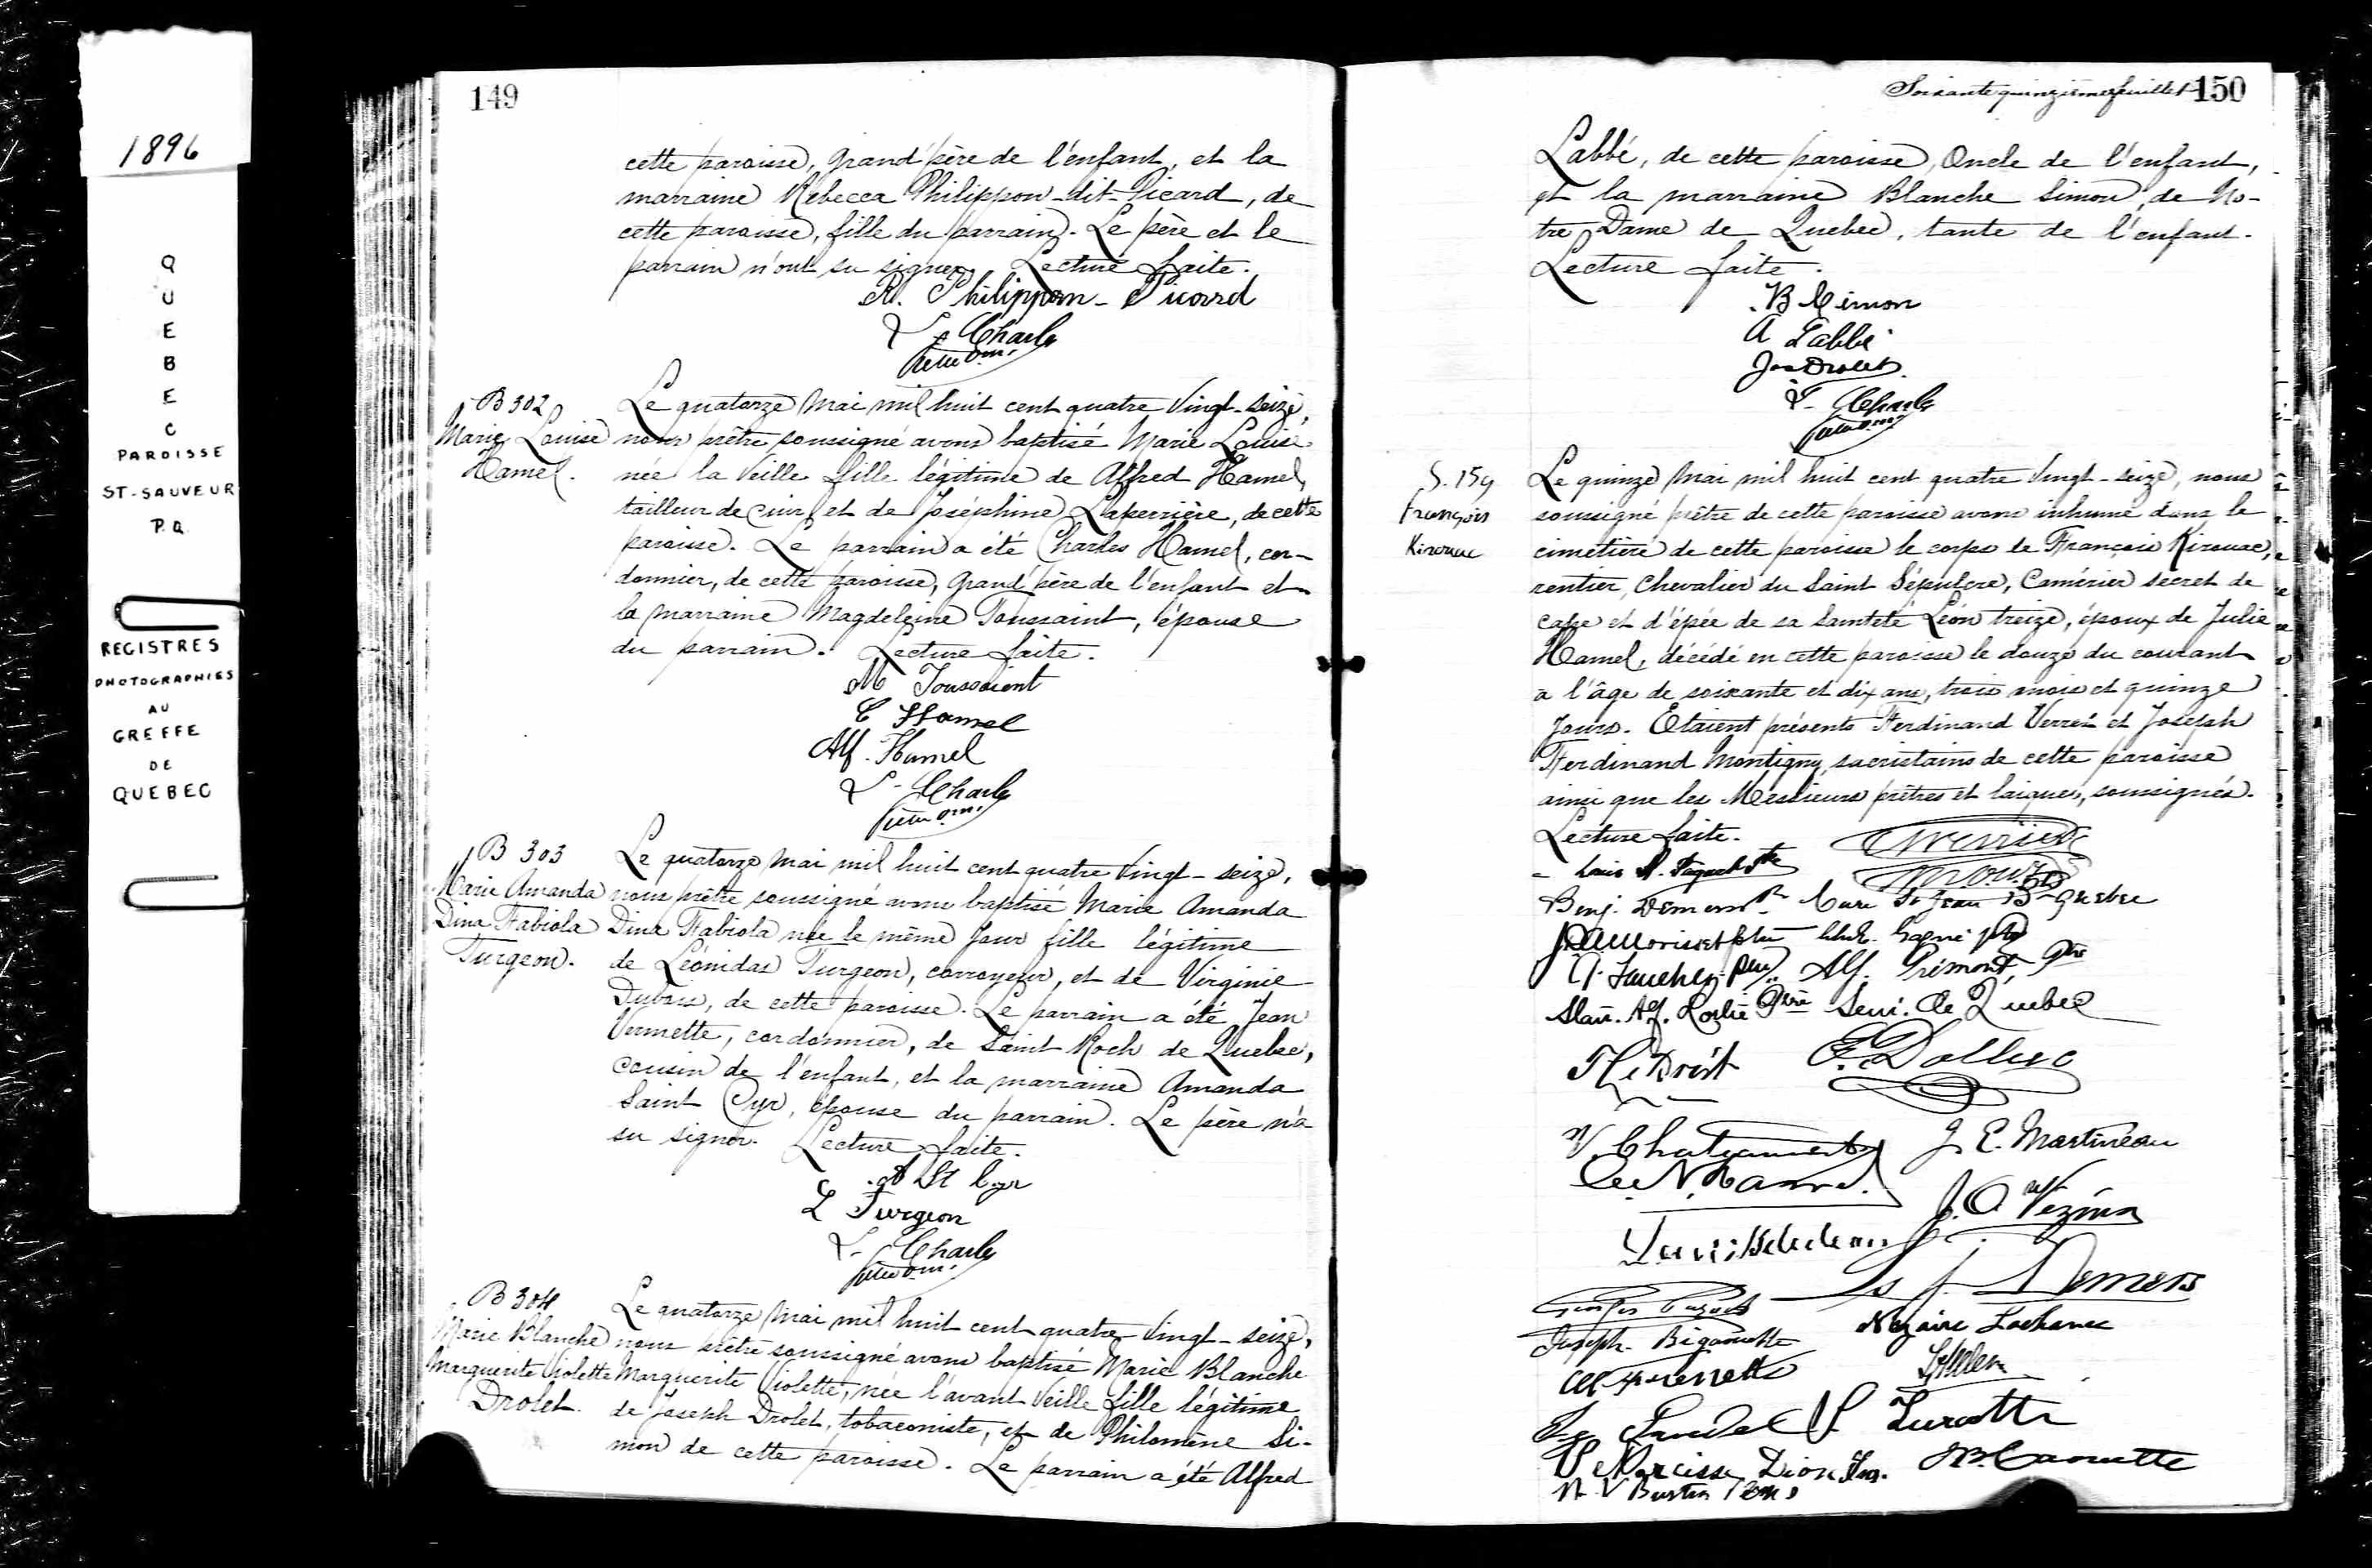 1896
QUEBEC
PAROISSE
ST-SAUVEUR
P.Q.
REGISTRES
PHOTOGRAPHIES
AU
GREFFE
DE
QUEBEC
149
cette paroisse, grand'père de l'enfant, et la
marraine Rebecca Philippon-dit-Picard, de
cette paroisse, fille du parrain. Le père et le
parrain n'ont su signer. Lecture faite.
R. Philippon-Picard
Charles
ptre o.m.i
B 302
Marie Louise
Hamel.
Le quatorze Mai mil huit cent quatre Vingt-seize,
nous prêtre soussigné avons baptisé Marie Louise
née la Veille fille légitime de Alfred Hamel,
tailleur de cuir, et de Joséphine Laperrière, de cette
paroisse. Le parrain a été Charles Hamel, cor-
donnier, de cette paroisse, grand'père de l'enfant et
la marraine Magdeleine Toussaint, épouse
du parrain. Lecture faite.
M Toussaient
C Hamel
Alf. Hamel
Charles
ptre o.m.i
B 303
Marie Amanda
Dina Fabiola
Turgeon.
Le quatorze Mai mil huit cent quatre Vingt-seize,
nous prêtre soussigné avons baptisé Marie Amanda
Dina Fabiola née le même Jour fille légitime
de Léonidas Turgeon, corroyeur, et de Virginie
Dubois, de cette paroisse. Le parrain a été Jean
Vermette, cordonnier, de Saint Roch de Quebec,
cousin de l'enfant, et la marraine Amanda
Saint Cyr, épouse du parrain. Le père n'a
su signer. Lecture faite.
A St Cyr
L Turgeon
Charles
ptre o.m.i
B 304
Marie Blanche
Marguerite Violette
Drolet.
Le quatorze Mai mil huit cent quatre-Vingt-seize,
nous prêtre soussigné avons baptisé Marie Blanche
Marguerite Violette, née l'avant Veille fille légitime
de Joseph Drolet, tobaconiste, et de Philomène Si-
mon de cette paroisse. Le parrain a été Alfred
Soixante quinzième feuillet 150
Labbé, de cette paroisse, Oncle de l'enfant,
et la marraine Blanche Simon, de No-
tre Dame de Quebec, tante de l'enfant.
Lecture faite.
B Cimon
A Labbé
Jos Drolet
Charles
ptre o.m.i
S. 159
François
Kirouac
Le quinze Mai mil huit cent quatre Vingt-seize, nous
soussigné prêtre de cette paroisse avons inhumé dans le
cimetière de cette paroisse le corps de François Kirouac,
rentier, Chevalier du Saint Sépulcre, Camérier secret de
cape et d'épée de sa Sainteté Léon treize, époux de Julie
Hamel, décédé en cette paroisse le douze du courant
a l'âge de soixante et dix ans, trois mois et quinze
Jours. Etaient présents Ferdinand Verret et Joseph
Ferdinand Montigny, sacristains de cette paroisse
ainsi que les Messieurs prêtres et laïques, soussignés.
Lecture faite.
Louis H. Paquet Ptre
Benj. Demers Ptr Curé St Jean B- Quebec
Gagné ptr
Faucher ptre Alf. Prémont, Ptre
Stan. Alf. Lortie Ptre Sém. de Québec
J. E. Martineau
J. O Vézina
J. Demers
Joseph Bigaouette Nazaire Lachance
Turcotte
Narcisse Dion